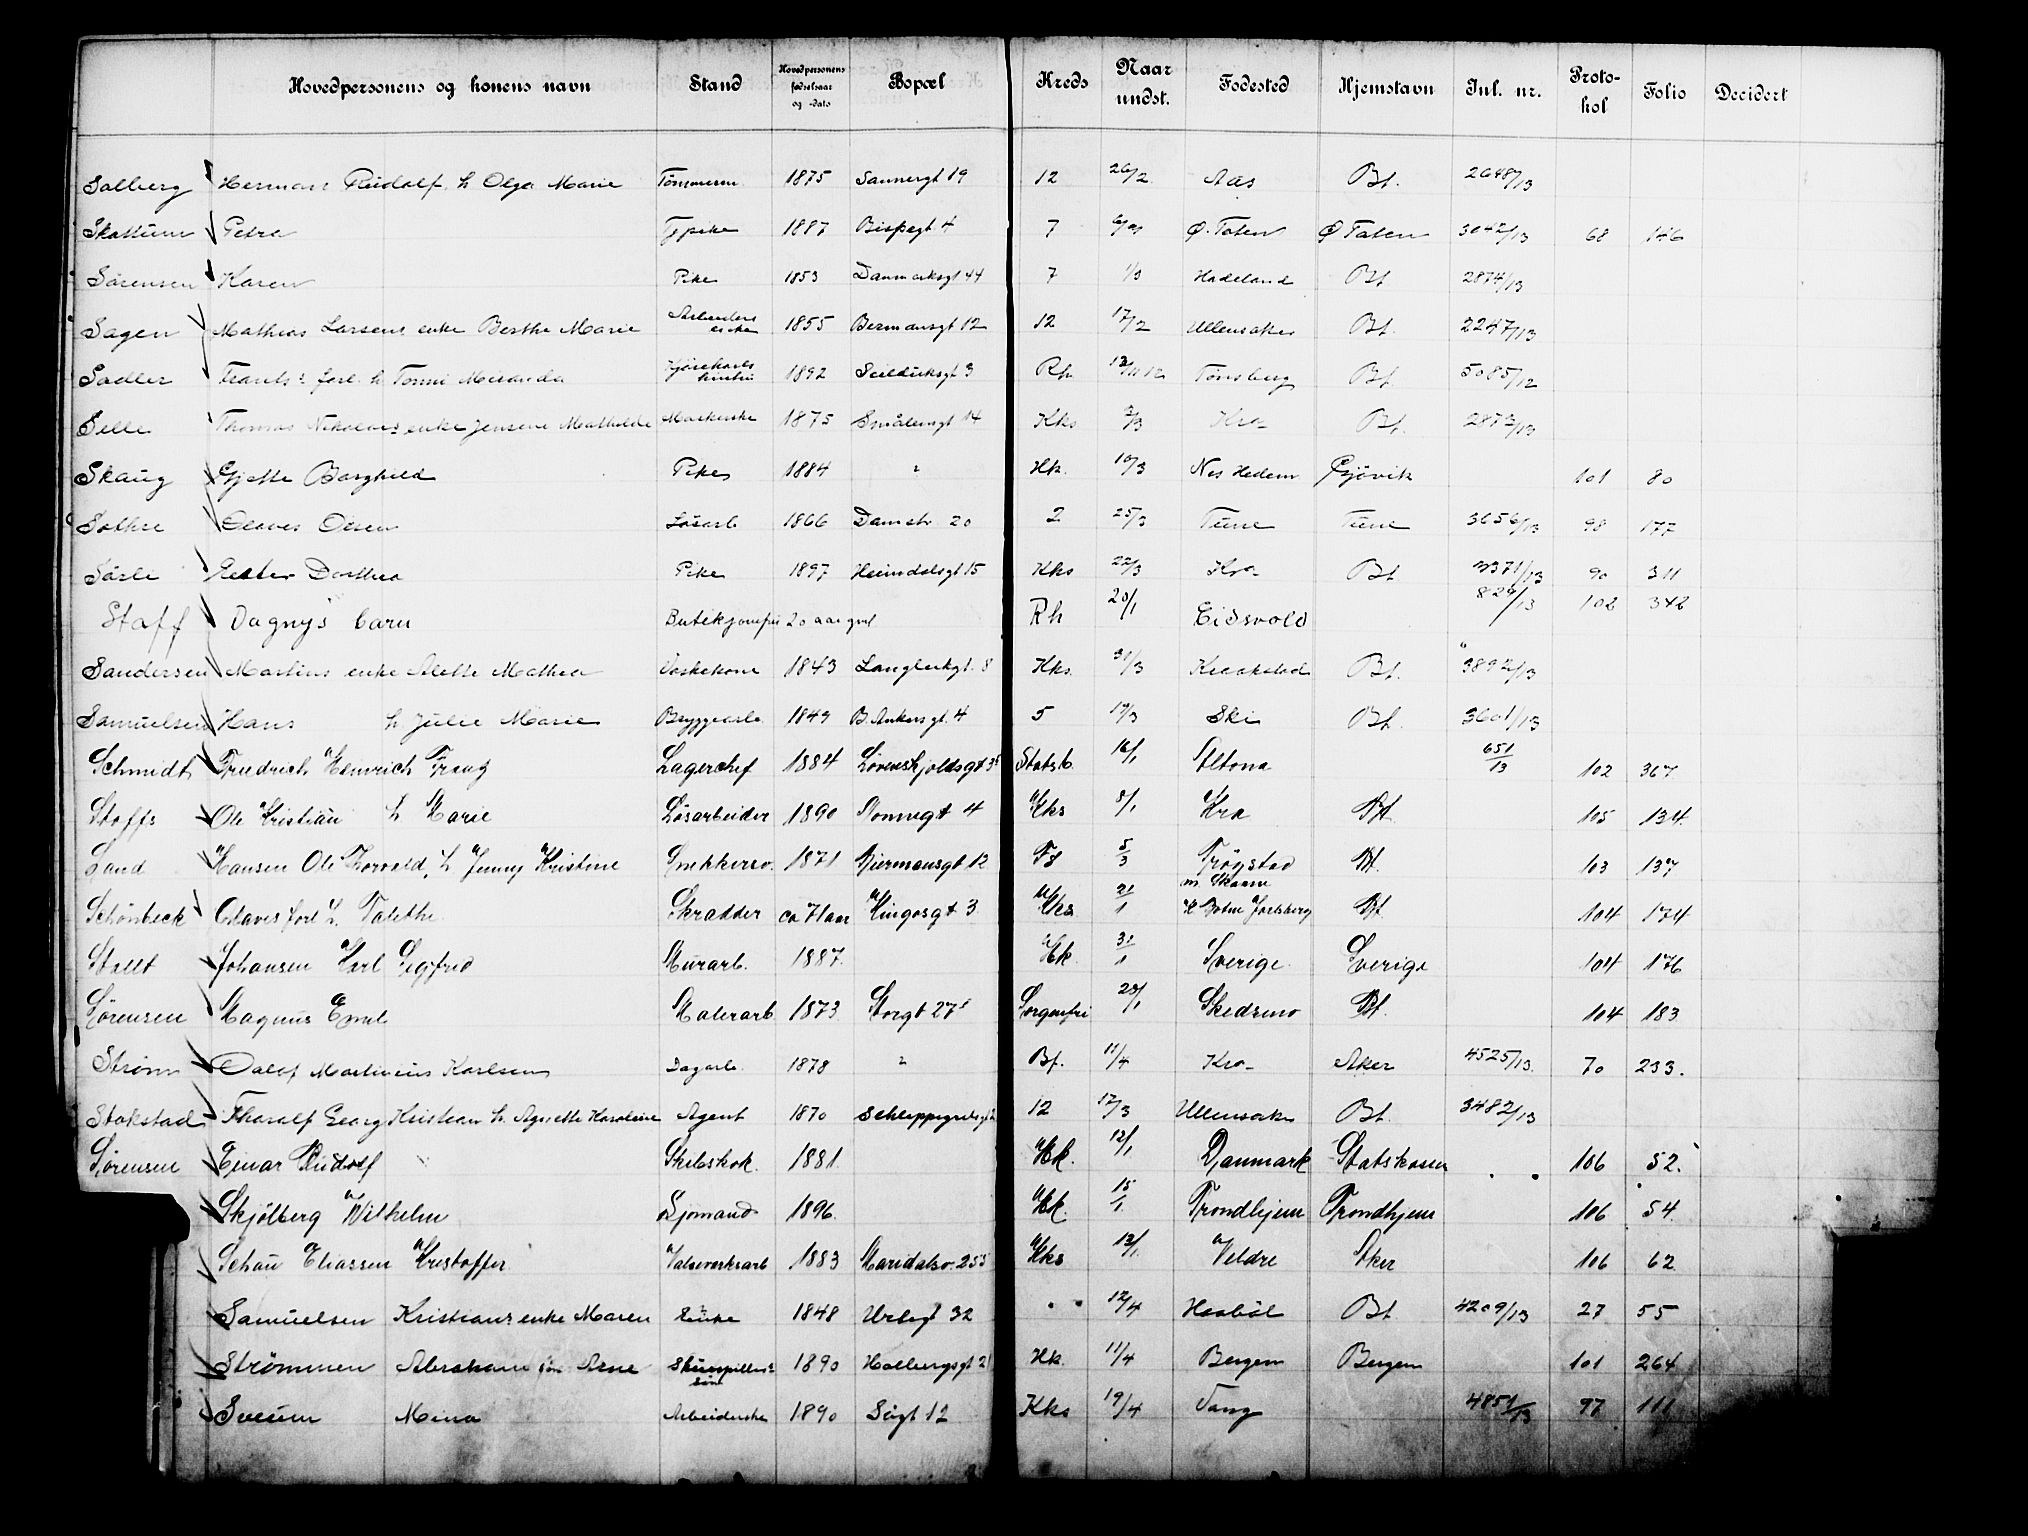 Hovedpersonens og konens navn Stand Hovedpersonens fødselsaar og -dato Bopæl Kreds Naar undst. Fødested Hjemstavn Jul. nr. Proto-kol Folio Decidert
Solberg Herman Rudolf h Olga Marie Tømmerm. 1875 Sannergt 19 12 26/2 Aas Bf. 2648/13
Skattum Petra Tjpike 1887 Bispegt 4 7 Ø. Toten Ø Toten 3042/13 68 146
Sørensen Karen Pike 1853 Danmarksgt 44 7 1/3 Hadeland Bf 2874/13
Sagen Mathias Larsens enke Berthe Marie Arbeiders enke 1855 Bermansgt 12 12 17/2 Ullensaker Bf. 2247/13
Sadler Frants's forl. h Tomni Miranda 1892 Seilduksgt 3 Rh 13/11 12 Tønsberg Bf 5085/12
Selle Thomas Nikolais enke Jensine Mathilde 1875 Smålensgt 14 Kks 3/3 Kra- Bf. 2873/13
Skaug Gjette Borghild Pike 1884 " Hk. 10/3 Nes Hedem. Gjøvik 101 80
Sothre Olaves Olsen Løsarb 1866 Damstr 20 2 25/3 Tune Tune 3656/13 98 177
Sørli Ester Dorthea Pike 1897 Heimdalsgt 15 Kks 22/3 Kra- Bf 3371/13 90 311
Staff Dagnys barn Butikjomfru 20 aar gml Rh 20/1 Eidsvold 826/13 102 342
Sandersen Martins enke Alette Mathea Vaskekone 1843 Langleikgt. 8 Kks. 31/3 Kraakstad Bf. 3892/13
Samuelsen Hans h Julie Marie Bryggearb. 1849 B. Ankersgt. 4 5 19/3 Ski Bf. 3601/13
Schmidt Friedrich Heinrich Franz Lagerchef 1884 Løvenskjoldsgt 3 Statsk. 16/1 Altona 651/13 102 367
Stoffs Ole Kristian h Marie Løsarbeider 1890 Normegt 4 Kks 8/1 Kra Bf. 105 134
Sand Hansen Ole Thorvald, h Jenny Kristine Snekkersv. 1871 Bjermansgt 12 Fs 5/3 Trøgstad Bf. 103 137
Schønbeck Olaves forl h. Talethe Skrædder ca 71 aar Kingosgt 3 Kks 21/1 m. Skaane k Botne Jarlsberg Bf 104 174
Stallt Johansen Karl Sigfrid Murarb. 1887. Hk. 31/1 Sverige. Sverige 104 176
Sørensen Magnus Emil Malerarb 1873 Storgt 27 Sorgenfri 28/1 Skedsmo Bf. 104 183
Strøm Oalaf Martinius Karlsen Dagarb. 1878 " Bf. 11/4 Kra- Aker 4525/13. 70 233.
Stokstad Tharalf Georg Kristian h. Agnethe Karoline Agent 1870 Schleppegrelsgt 12 17/3 Ullensaker Bf. 3482/13
Sørensen Einar Rudolf Skibskok. 1881. Hk. 12/1 Danmark Statskassen 106 52.
Skjølberg Wilhelm Sjømand 1896. Hk. 15/1 Trondhjem Trondhjem 106 54.
Schau Eliassen Kristoffer Valseverksarb 1883 Maridalsv. 255 Kks 13/1. Veldre Aker 106 62
Samuelsen Kristians enke Maren Enke 1848 Urtegt 32 12/4 Haabøl Bf 4209/13 27 55
Strømmen Abraham søn Arne Skuespillers søn 1890 Holbergsgt 21 Hk. 11/4 Bergen Bergen 101 264
Sveum Mina Arbeiderske 1890 Søgt 12 Kks 19/4 Vang 4851/13 97 111